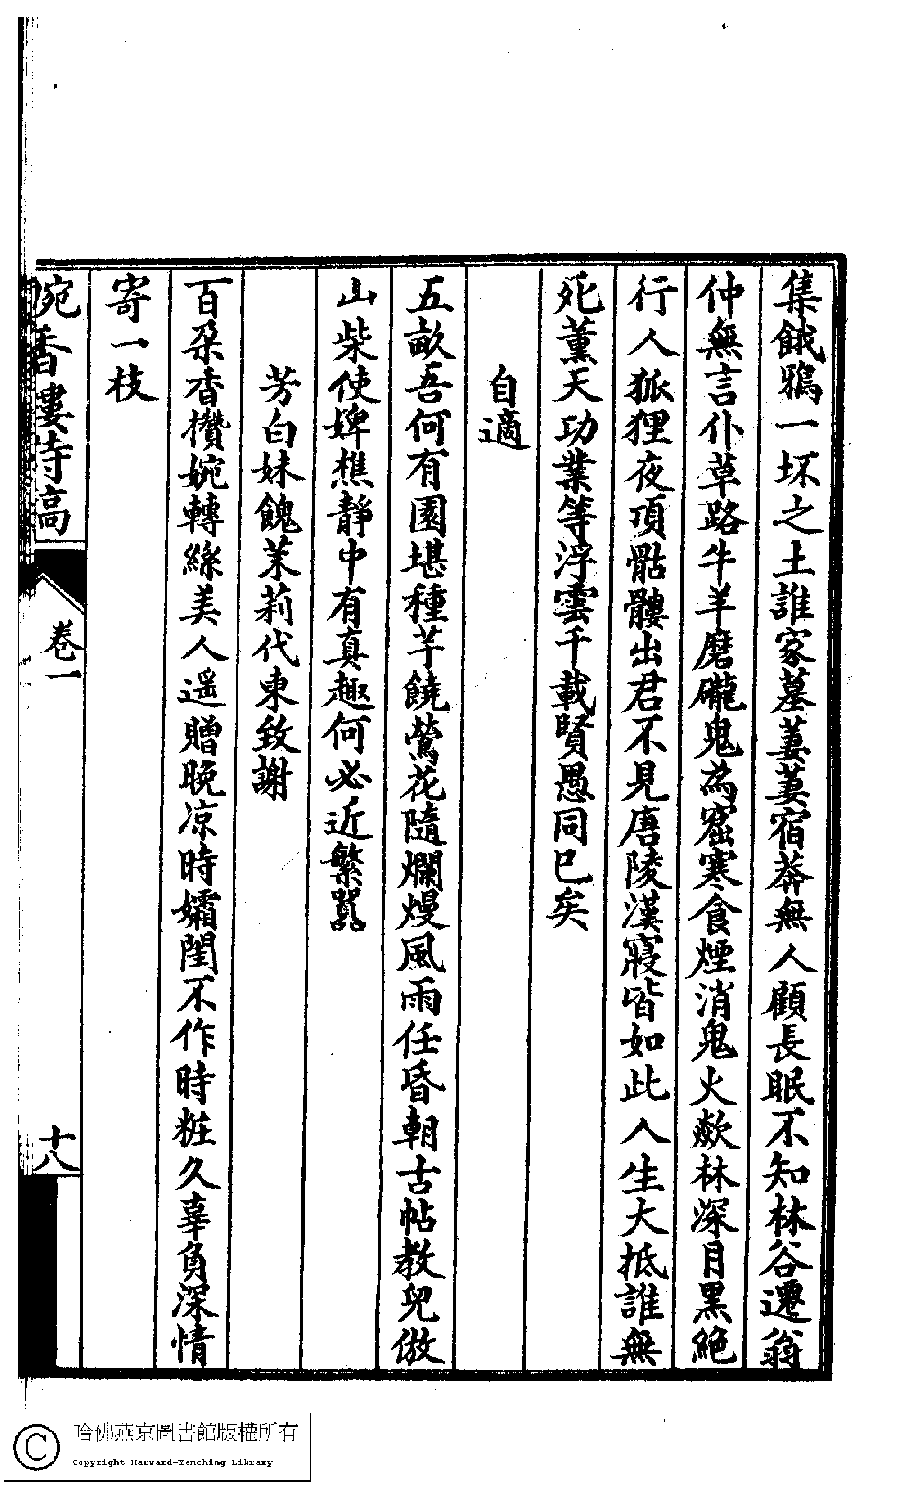 集餓鴉一坏之土誰家墓萋萋宿莽無人顧長眠不知林谷遷翁
仲無言仆草路牛羊磨礲鬼為窟寒食煙消鬼火歘林深月黑絕
行人狐狸夜項骷髏出君不見唐陵漢寢皆如此人生大抵誰無
死薰天功業等浮雲千載賢愚同已矣
自適
五畝吾何有園堪種芋饒鶯花隨爛熳風雨任昏朝古帖教兒倣
山柴使婢樵靜中有真趣何必近繁囂
芳白妹餽茉莉代柬致謝
百朶香攢婉轉絲美人遥贈晚凉時孀閨不作時粧久辜負深情
寄一枝
婉香樓詩稿
卷一
十八
哈佛燕京圖書館版權所有
Copyright Harvard-Yenching Library